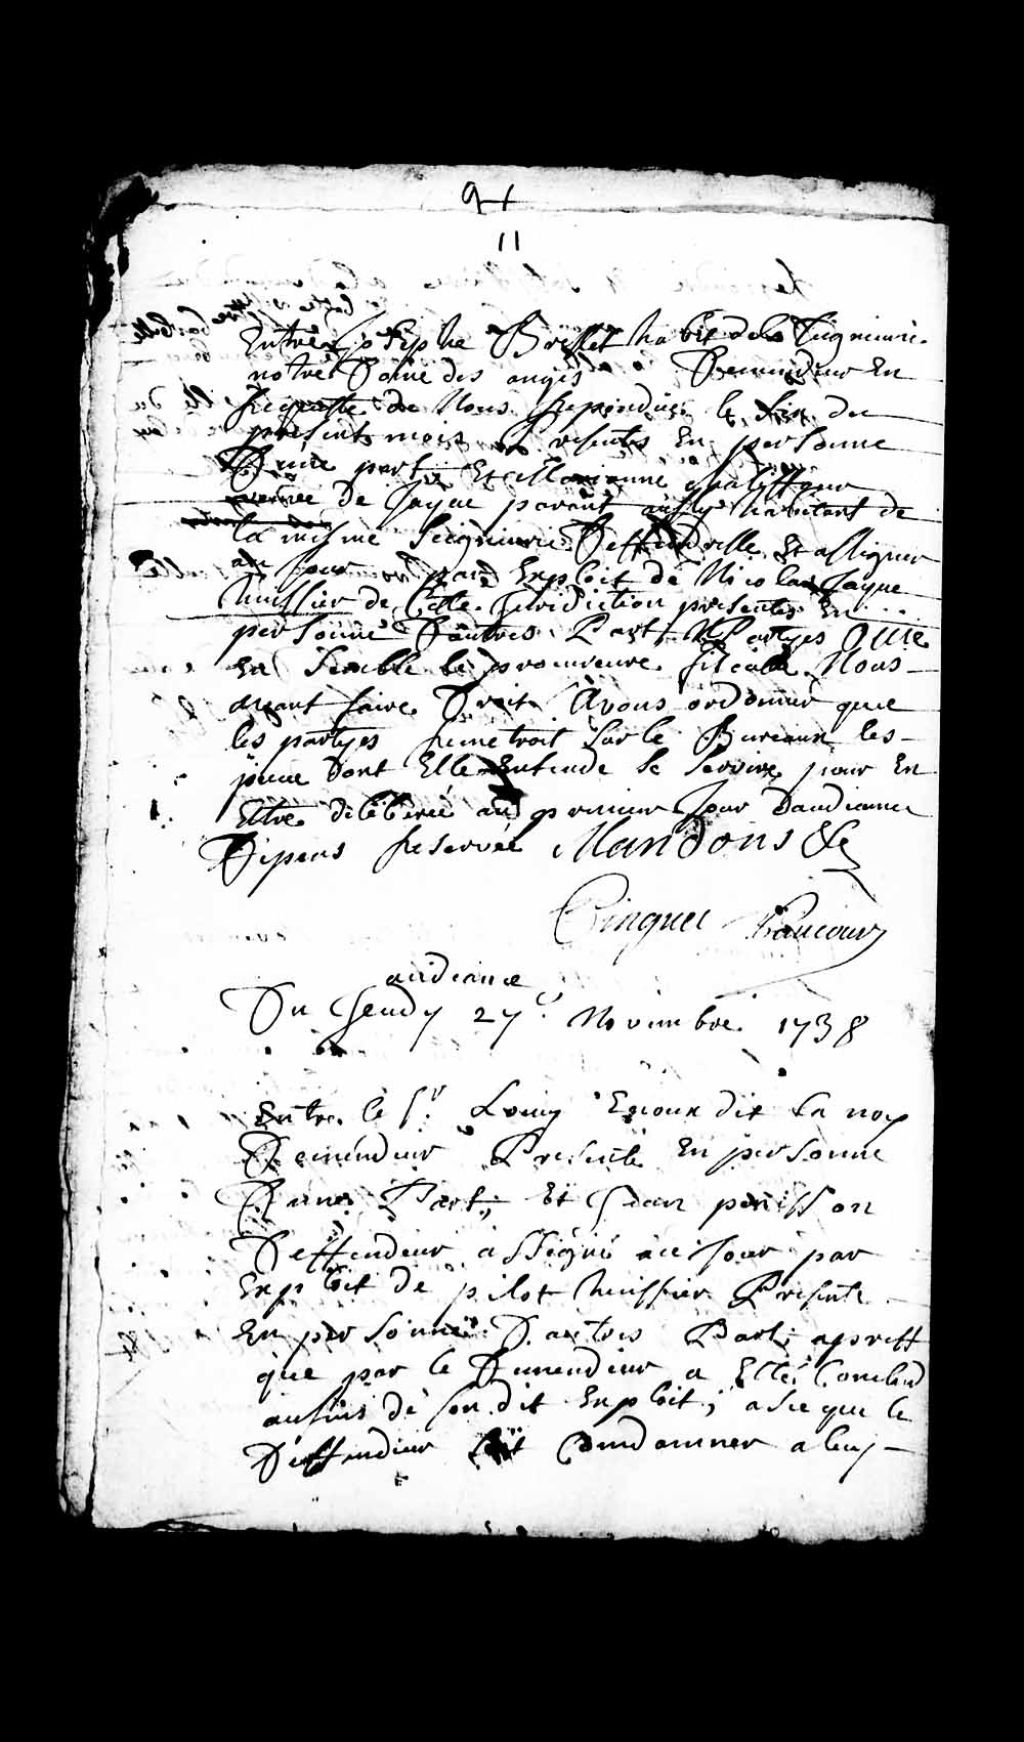 91
11
Entre Joseph Brisset habit de la Seigneurie
notre Dame des anges Demendeur En
Requeste de Nous Repondue le du
présent mois presentes En personne
D'une part Et Marianne
veuve De Jaque parant aussy habitant de
la mesme Seigneurie Deffendresse Et assignée
au jour par Exploit de Nicolas Jaque
huissier de Cette Juridiction presentes En
personne D'autres Part Partyes Ouie
En Semble le procureure fiscalle Nous
avant faire Droit Avons ordonner que
les partyes Remetroit Sur le Bureaux les
piece Dont Elle Entende Se Servire pour En
Estre deliberée au premier Jour Daudiance
Depens Reservée Mandons &c
Cinquet Vaucour
audiance
Du Jeudy 27e Novembre 1738
Entre le Sr Louis Enoux dit la noy
Demendeur Presente En personne
D'une Part; Et Jean périsson
Deffendeur assigné au Jour par
Exploit de pilot huissier Presente
En personne D'autres Part; apres
que par le Demendeur a Etté Conclud
aufins de son dit Exploit; a Ce que le
Deffendeur Soit Condamner a luy